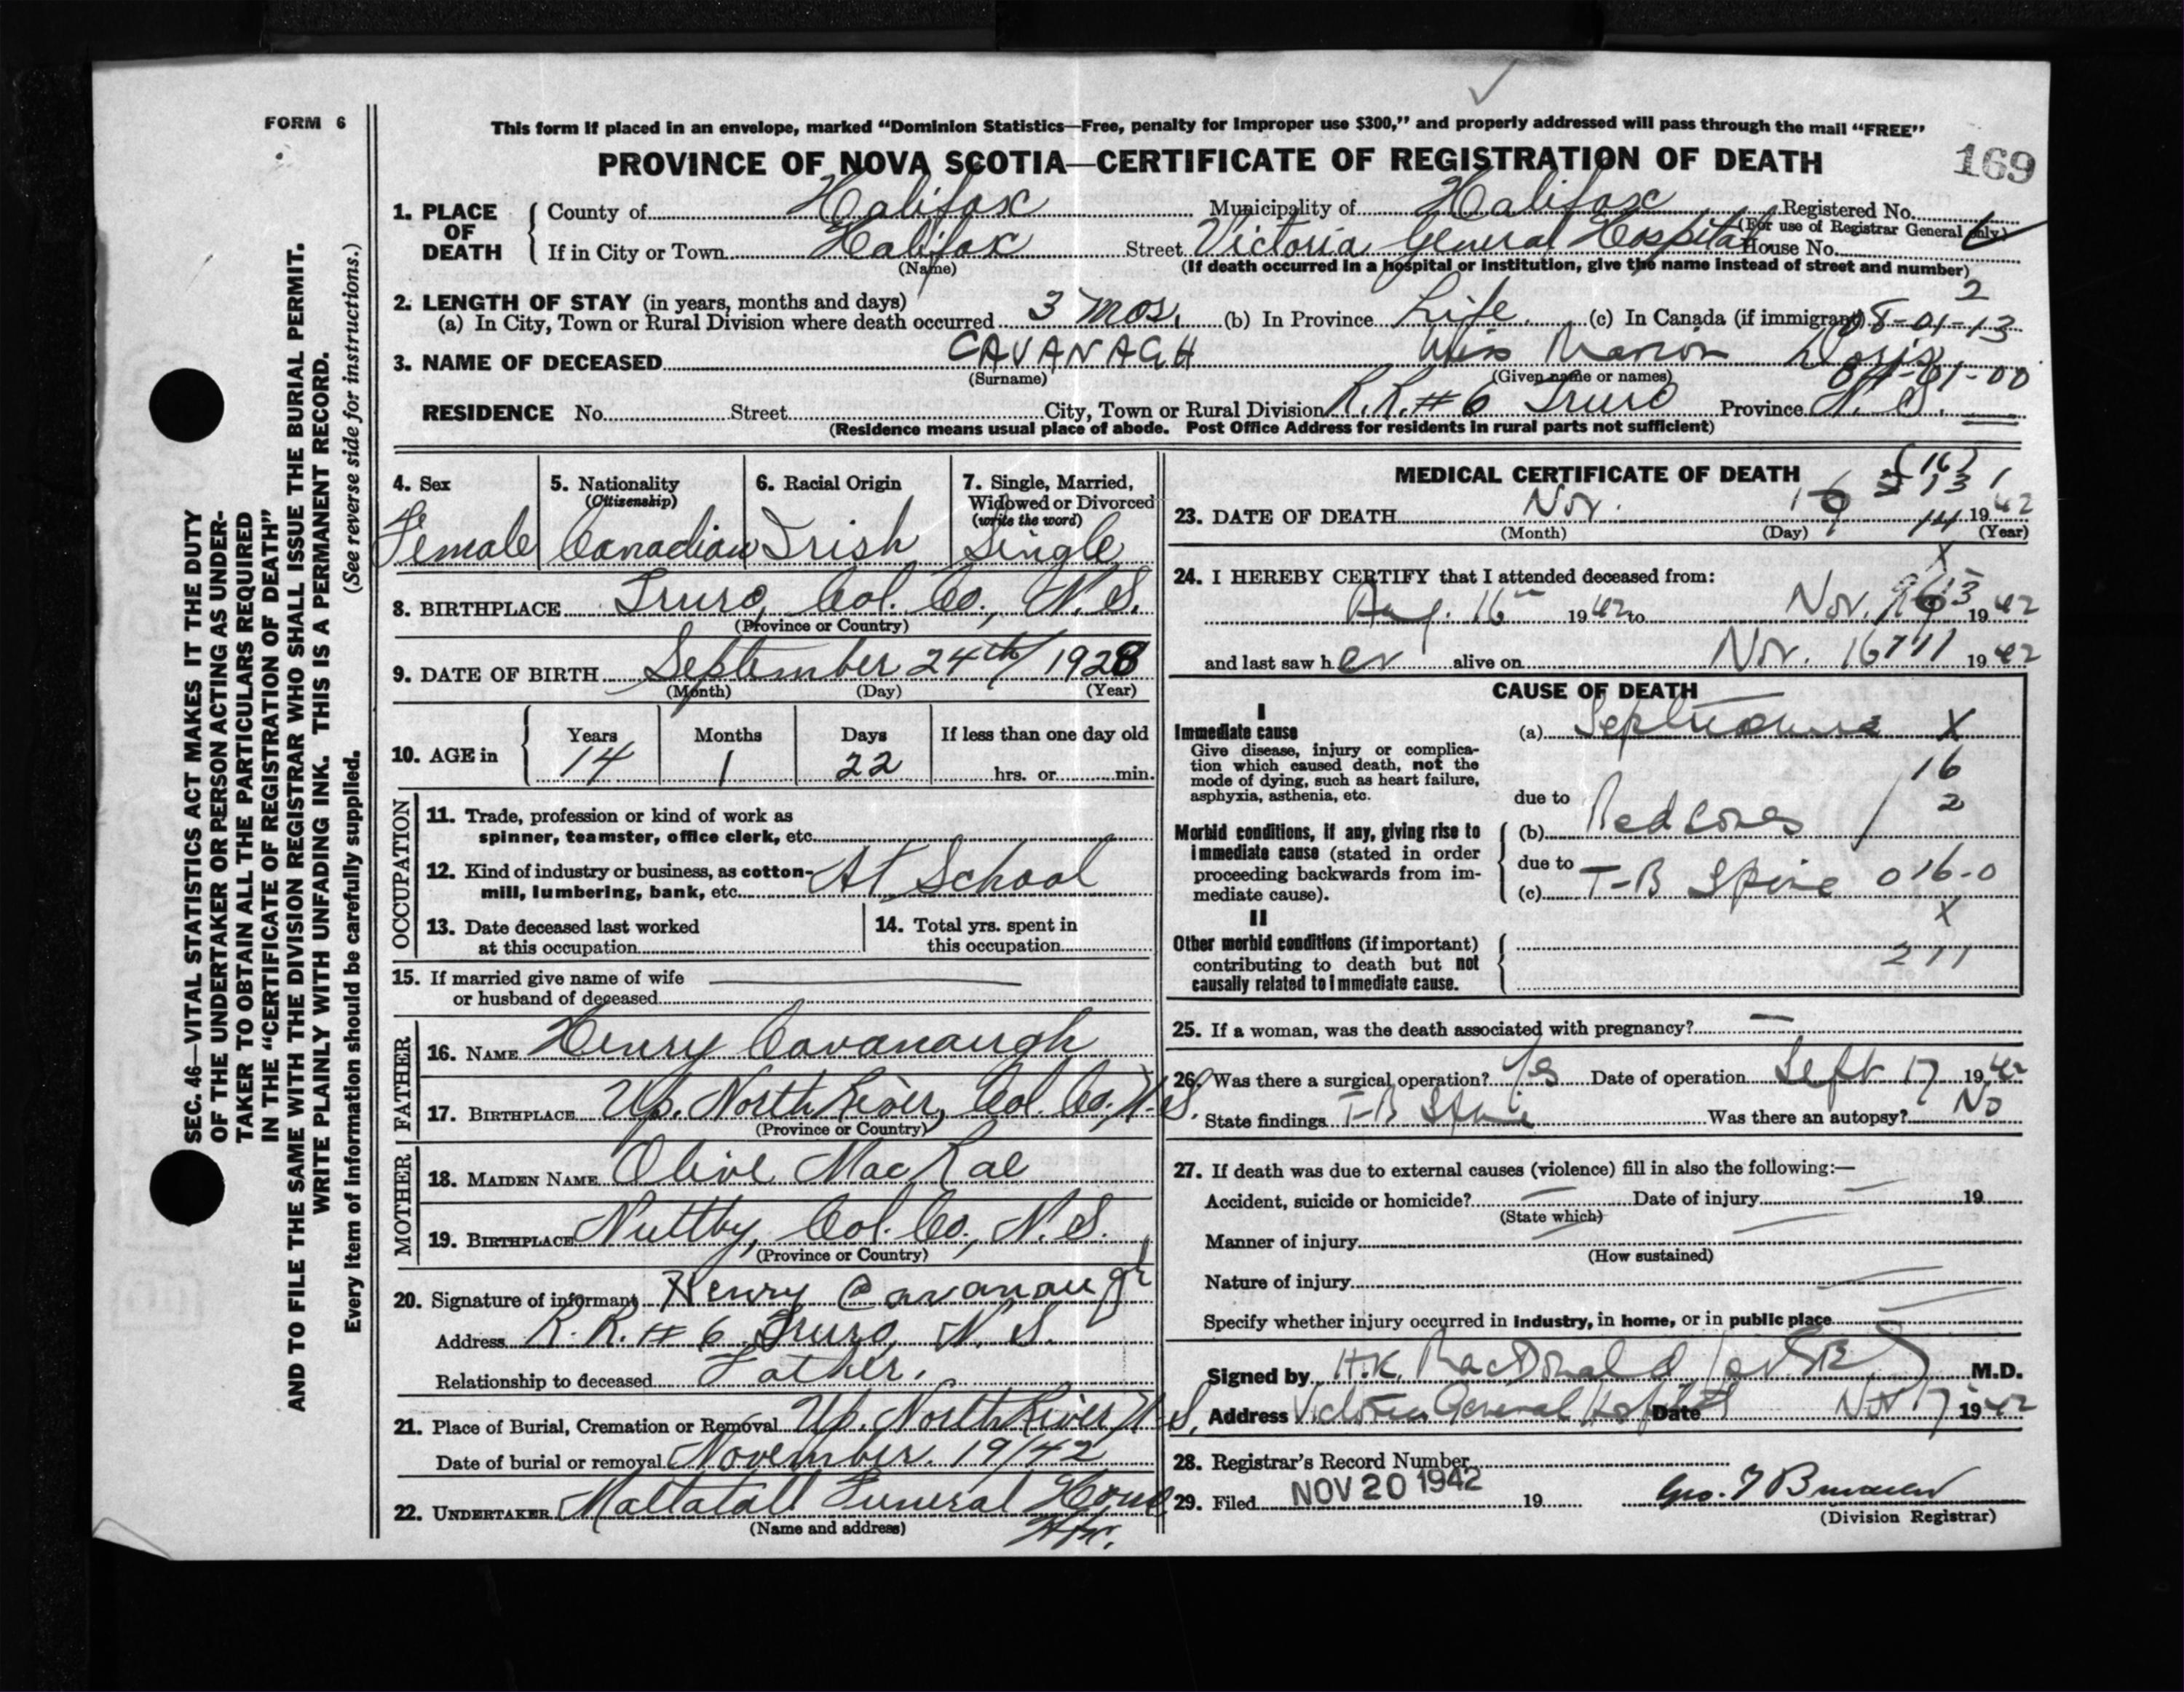 FORM 6
This form if placed in an envelope, marked “Dominion Statistics—Free, penalty for improper use $300,” and properly addressed will pass through the mail “FREE”
PROVINCE OF NOVA SCOTIA—CERTIFICATE OF REGISTRATION OF DEATH
169
1. PLACE OF DEATH
County of Halifax Municipality of Halifax Registered No.
(For use of Registrar General only)
If in City or Town Halifax Street Victoria General Hospital House No.
(Name) (If death occurred in a hospital or institution, give the name instead of street and number)
2. LENGTH OF STAY (in years, months and days) 2
(a) In City, Town or Rural Division where death occurred 3 mos. (b) In Province Life (c) In Canada (if immigrant) 08-01-13
3. NAME OF DECEASED CAVANAGH Miss Marion Doris
(Surname) (Given name or names) 84-01-00
RESIDENCE No. Street City, Town or Rural Division R.R. # 6 Truro Province N. S.
(Residence means usual place of abode. Post Office Address for residents in rural parts not sufficient)
SEC. 46—VITAL STATISTICS ACT MAKES IT THE DUTY
OF THE UNDERTAKER OR PERSON ACTING AS UNDER-
TAKER TO OBTAIN ALL THE PARTICULARS REQUIRED
IN THE “CERTIFICATE OF REGISTRATION OF DEATH”
AND TO FILE THE SAME WITH THE DIVISION REGISTRAR WHO SHALL ISSUE THE BURIAL PERMIT.
WRITE PLAINLY WITH UNFADING INK. THIS IS A PERMANENT RECORD.
Every item of information should be carefully supplied. (See reverse side for instructions.)
4. Sex 5. Nationality 6. Racial Origin 7. Single, Married,
(Citizenship) Widowed or Divorced
(write the word)
Female Canadian Irish Single
8. BIRTHPLACE Truro, Col. Co., N. S.
(Province or Country)
9. DATE OF BIRTH September 24th 1928
(Month) (Day) (Year)
10. AGE in Years Months Days If less than one day old
14 1 22 hrs. or min.
OCCUPATION
11. Trade, profession or kind of work as
spinner, teamster, office clerk, etc.
12. Kind of industry or business, as cotton-
mill, lumbering, bank, etc. At School
13. Date deceased last worked
at this occupation
14. Total yrs. spent in
this occupation
15. If married give name of wife
or husband of deceased
FATHER
16. NAME Henry Cavanaugh
17. BIRTHPLACE Up. North River, Col. Co., N. S.
(Province or Country)
MOTHER
18. MAIDEN NAME Olive MacRae
19. BIRTHPLACE Nuttby, Col. Co., N. S.
(Province or Country)
20. Signature of informant Henry Cavanaugh
Address R. R. # 6 Truro, N. S.
Relationship to deceased Father.
21. Place of Burial, Cremation or Removal Up. North River, N. S.
Date of burial or removal November. 19/42
22. UNDERTAKER Mattatall Funeral Home
(Name and address) Hfx.
MEDICAL CERTIFICATE OF DEATH
(16)
13 1
23. DATE OF DEATH Nov. 16 14 1942
(Month) (Day) (Year)
24. I HEREBY CERTIFY that I attended deceased from: X
Aug. 16 1942 to Nov. 1942
and last saw her alive on Nov. 16 1942
CAUSE OF DEATH
I
Immediate cause
Give disease, injury or complica-
tion which caused death, not the
mode of dying, such as heart failure,
asphyxia, asthenia, etc.
(a) Septicaemia X
16
due to 2
Morbid conditions, if any, giving rise to
immediate cause (stated in order
proceeding backwards from im-
mediate cause).
(b) Bedsores
due to
(c) T-B Spine 016-0
II X
Other morbid conditions (if important)
contributing to death but not
causally related to immediate cause.
211
25. If a woman, was the death associated with pregnancy? —
26. Was there a surgical operation? Yes Date of operation Sept 17 1942
State findings T-B Spine Was there an autopsy? No
27. If death was due to external causes (violence) fill in also the following:—
Accident, suicide or homicide? — Date of injury — 19
(State which)
Manner of injury —
(How sustained)
Nature of injury —
Specify whether injury occurred in industry, in home, or in public place —
Signed by H.K. MacDonald M.D.
Address Victoria General Hospital Date Nov 17 1942
28. Registrar's Record Number
29. Filed NOV 20 1942 19 Geo. F
(Division Registrar)